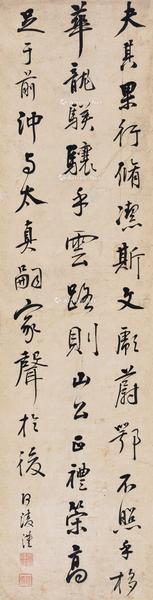 夫其果行脩潔斯文彪蔚鄂不照乎栘
華龍騤驤乎雲路則山公正禮榮高
足于前沖与太真嗣家聲於後 何淩漢